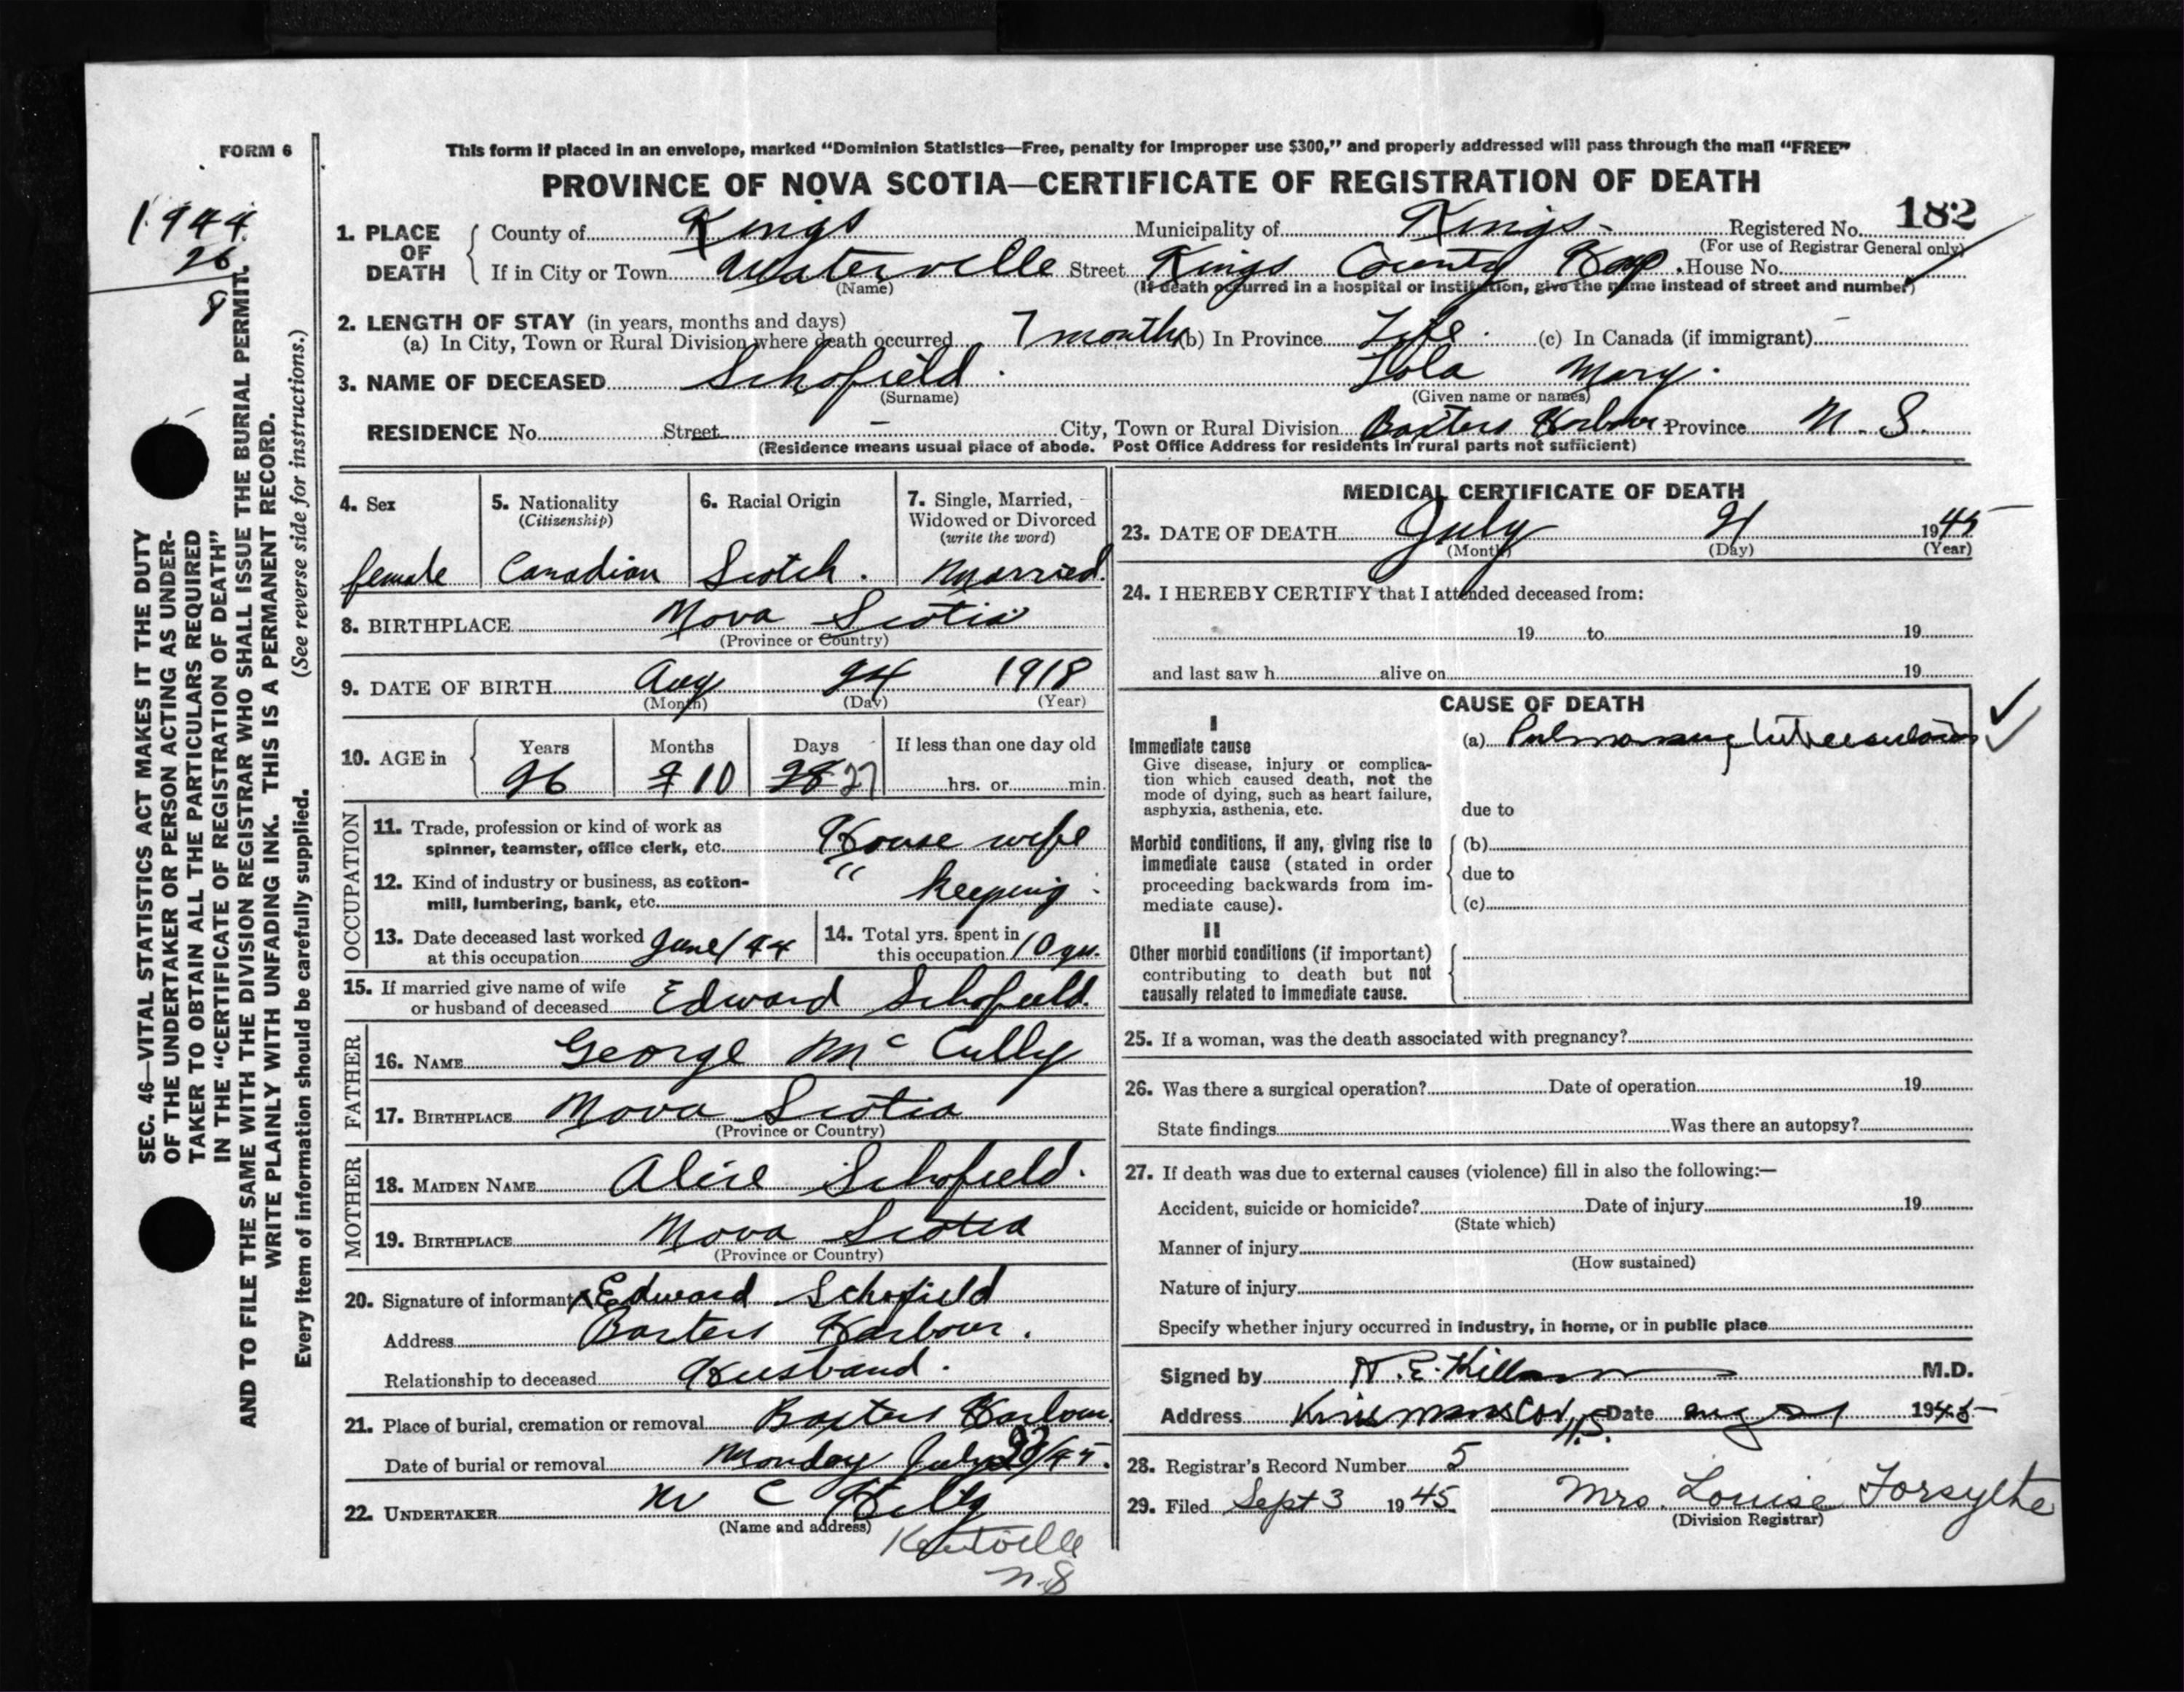 FORM 6
This form if placed in an envelope, marked “Dominion Statistics—Free, penalty for improper use $300,” and properly addressed will pass through the mail “FREE”
PROVINCE OF NOVA SCOTIA—CERTIFICATE OF REGISTRATION OF DEATH
1944
26
8
182
1. PLACE OF DEATH
County of Kings Municipality of Kings Registered No.
(For use of Registrar General only)
If in City or Town Waterville Street Kings County Hosp. House No.
(Name) (If death occurred in a hospital or institution, give the name instead of street and number)
2. LENGTH OF STAY (in years, months and days)
(a) In City, Town or Rural Division where death occurred 7 months (b) In Province Life. (c) In Canada (if immigrant)
3. NAME OF DECEASED Schofield. Lola Mary.
(Surname) (Given name or names)
RESIDENCE No. Street – City, Town or Rural Division Baxters Harbour Province N. S.
(Residence means usual place of abode. Post Office Address for residents in rural parts not sufficient)
4. Sex
female
5. Nationality
(Citizenship)
Canadian
6. Racial Origin
Scotch.
7. Single, Married, Widowed or Divorced
(write the word)
Married.
8. BIRTHPLACE Nova Scotia
(Province or Country)
9. DATE OF BIRTH Aug 24 1918
(Month) (Day) (Year)
10. AGE in
Years Months Days If less than one day old
26 10 27 hrs. or min.
OCCUPATION
11. Trade, profession or kind of work as
spinner, teamster, office clerk, etc. House wife
12. Kind of industry or business, as cotton-
mill, lumbering, bank, etc. " keeping
13. Date deceased last worked
at this occupation June/44
14. Total yrs. spent in
this occupation 10 yrs.
15. If married give name of wife
or husband of deceased Edward Schofield.
FATHER
16. NAME George Mc Cully
17. BIRTHPLACE Nova Scotia
(Province or Country)
MOTHER
18. MAIDEN NAME Alice Schofield.
19. BIRTHPLACE Nova Scotia
(Province or Country)
20. Signature of informant x Edward Schofield
Address Baxters Harbour.
Relationship to deceased Husband.
21. Place of burial, cremation or removal Baxters Harbour
Date of burial or removal Monday July 23/45.
22. UNDERTAKER W C
(Name and address)
Kentville
N.S
MEDICAL CERTIFICATE OF DEATH
23. DATE OF DEATH July 21 1945
(Month) (Day) (Year)
24. I HEREBY CERTIFY that I attended deceased from:
19 to 19
and last saw h alive on 19
CAUSE OF DEATH
I
Immediate cause
Give disease, injury or complica-
tion which caused death, not the
mode of dying, such as heart failure,
asphyxia, asthenia, etc.
(a) Pulmonary tuberculosis
due to
Morbid conditions, if any, giving rise to
immediate cause (stated in order
proceeding backwards from im-
mediate cause).
(b)
due to
(c)
II
Other morbid conditions (if important)
contributing to death but not
causally related to immediate cause.
25. If a woman, was the death associated with pregnancy?
26. Was there a surgical operation? Date of operation 19
State findings Was there an autopsy?
27. If death was due to external causes (violence) fill in also the following:—
Accident, suicide or homicide? Date of injury 19
(State which)
Manner of injury
(How sustained)
Nature of injury
Specify whether injury occurred in industry, in home, or in public place
Signed by M.D.
Address N.S. Date Aug 1945
28. Registrar's Record Number 5
29. Filed Sept 3 1945 Mrs. Louise Forsythe
(Division Registrar)
SEC. 46—VITAL STATISTICS ACT MAKES IT THE DUTY
OF THE UNDERTAKER OR PERSON ACTING AS UNDER-
TAKER TO OBTAIN ALL THE PARTICULARS REQUIRED
IN THE “CERTIFICATE OF REGISTRATION OF DEATH”
AND TO FILE THE SAME WITH THE DIVISION REGISTRAR WHO SHALL ISSUE THE BURIAL PERMIT.
WRITE PLAINLY WITH UNFADING INK. THIS IS A PERMANENT RECORD.
Every item of information should be carefully supplied. (See reverse side for instructions.)